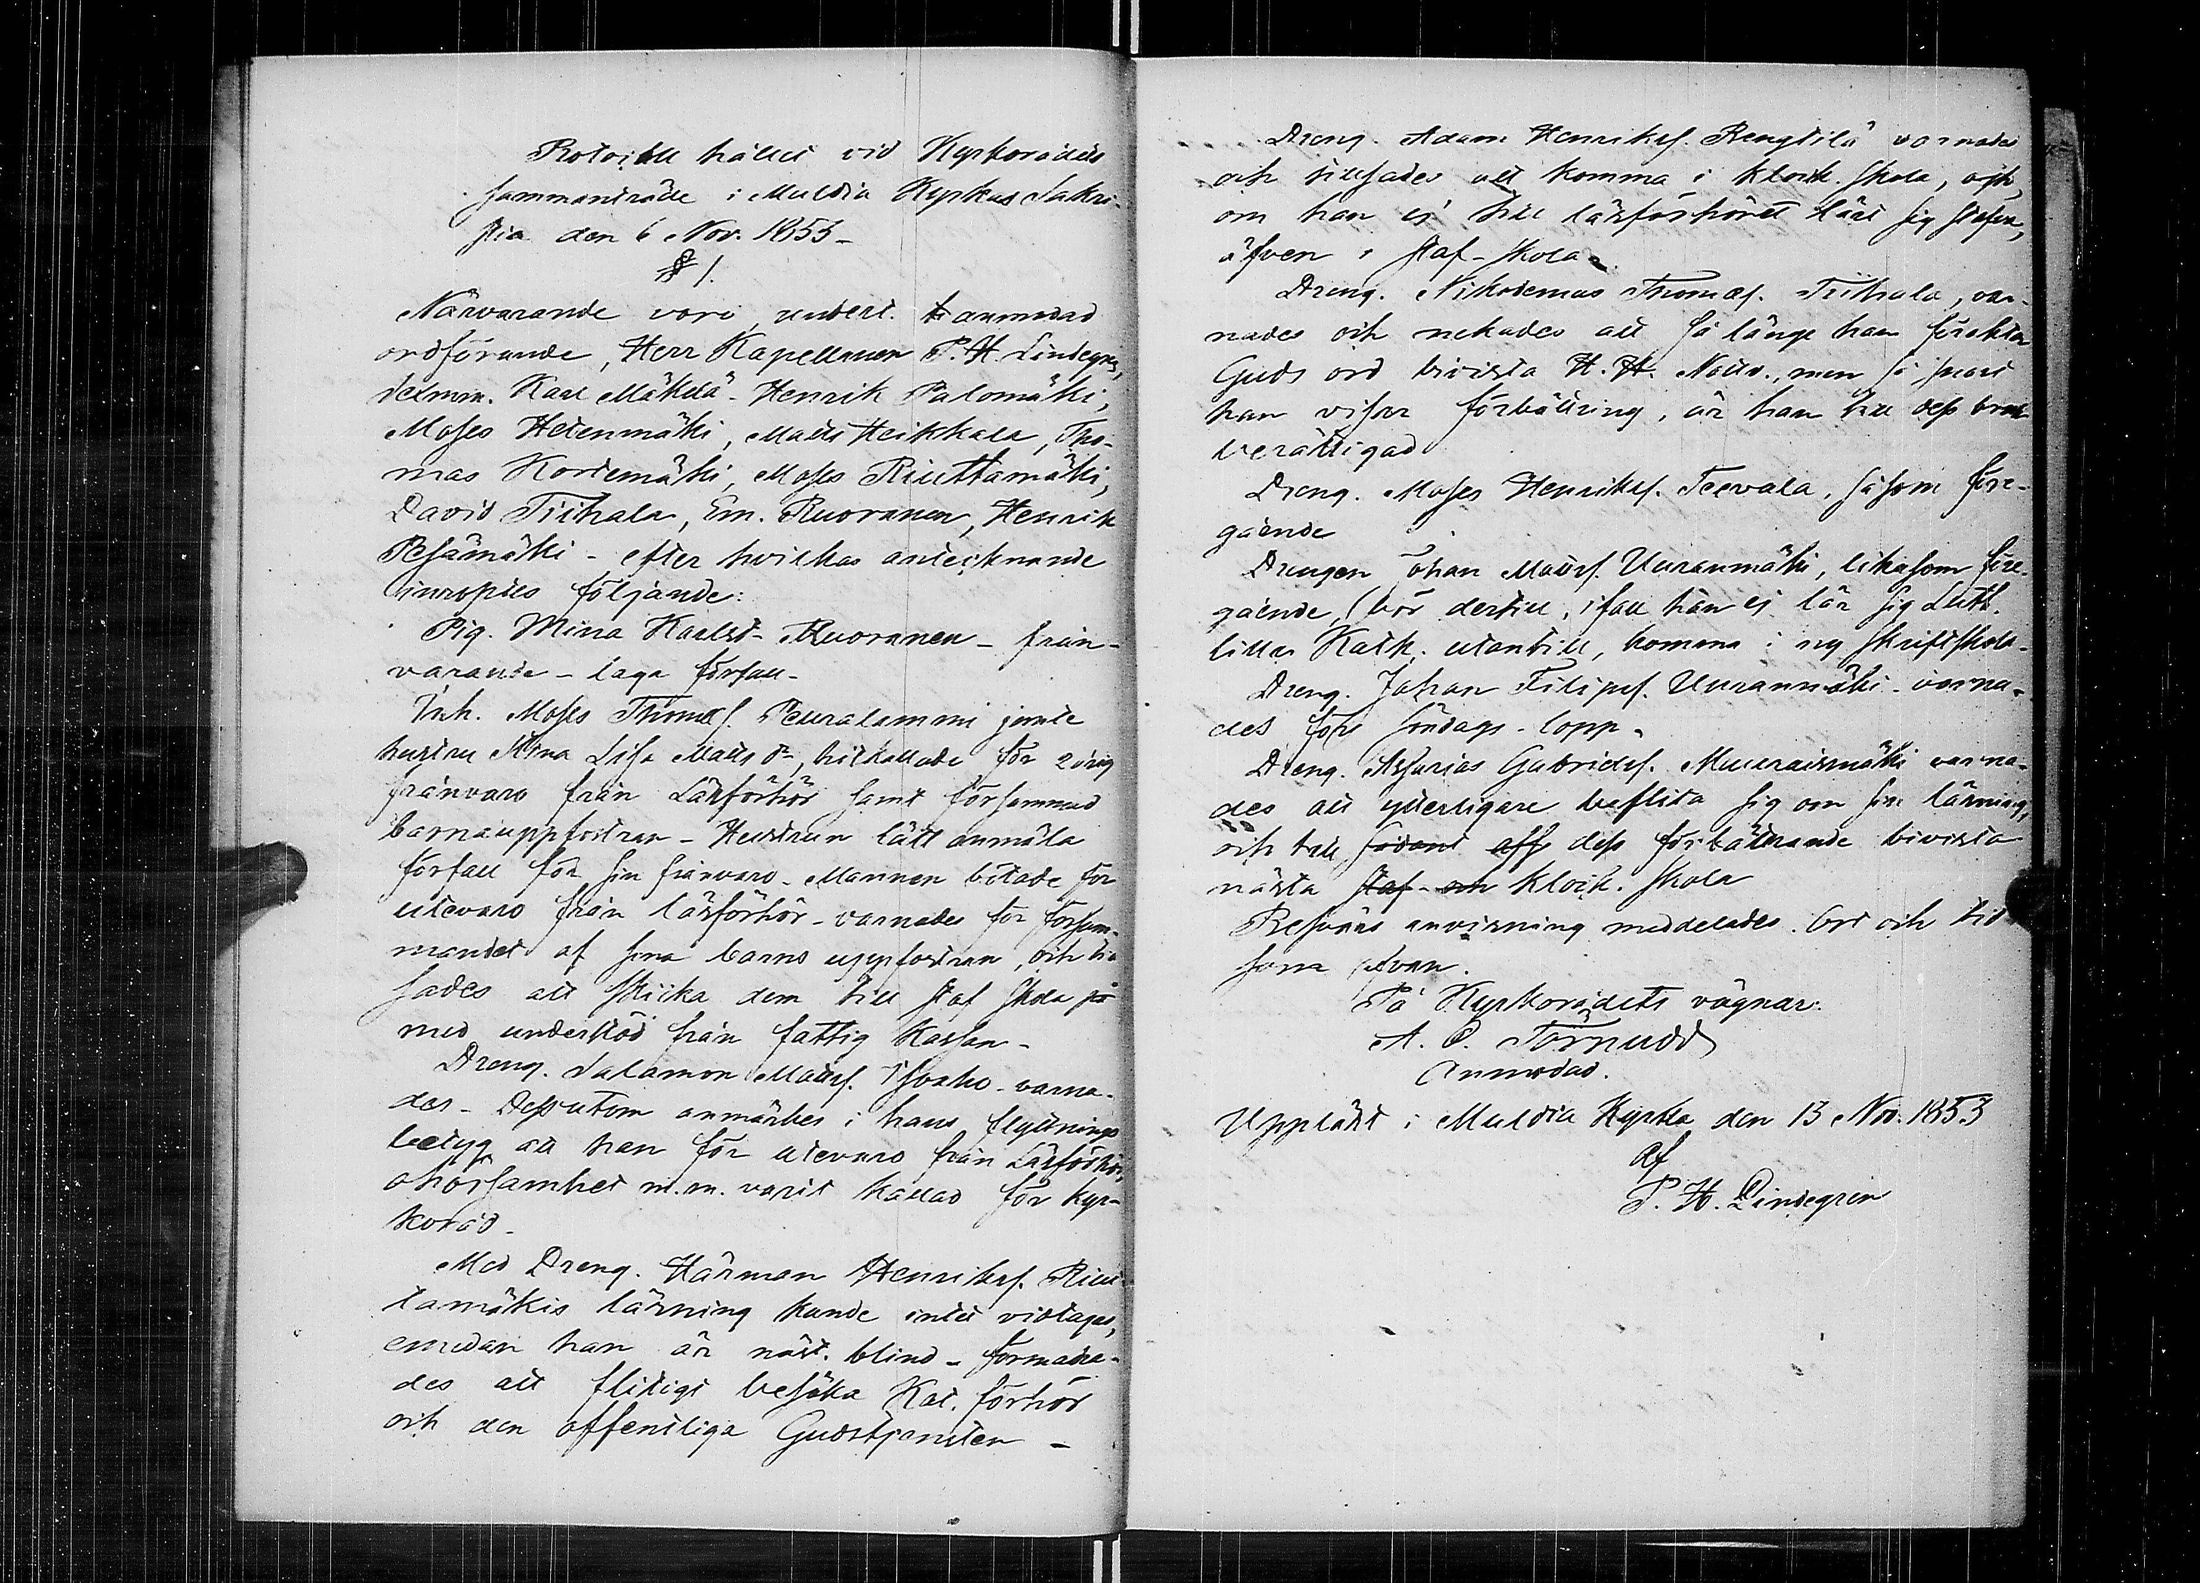 Protokoll hållet vid Kyrkorådets
sammanträde i Muldia Kyrkas Sakri-
stia den 6 Nov. 1853 -
§ 1.
Närvarande voro, undert. anmodad
ordförande, Herr Kapellanen P. H. Lindegren,
Karl Mäkelä - Henrik Palomäki,
Moses Hetenmäki, Matts Heikkala, Tho-
mas Kortemäki, Moses Riuttamäki,
David Tiihala, Em. Ruoranen, Henrik
Pesämäki - efter hvilkas antecknande
följande:
Pig. Mina Karlsd. Ruoranen - från-
varande - laga förfall -
Inh. Moses Thomæs. Peuralammi jemte
hustru Mina Lisa Matts dr, hitkallade för 2årig
frånvaro från Läsförhör samt försummad
barnauppfostran - Hustrun lätt anmäla
förfall för sin frånvaro - Mannen bötade för
utevaro från läsförhör - varnades för försum-
mandet af sina barns uppfostran, och till
sades att skicka dem till staf skola på
med understöd från fattig kassan -
Dreng. Salamon Mattss. Isoaho - varna-
des - Dessutom anmärkes i hans flyttnings
betyg att han för utevaro från Läsförhör,
ohörsamhet m.m. varit kallad för kyr-
koråd -
Med Dreng. Härman Henrikss. Riut-
tamäkis läsning kunde intet vidtagas,
emedan han är näst. blind - förmana-
des att flitigt besöka Kat. förhör
och den offentliga Gudstjensten -
Dreng. Adam Henrikss. Rengtilä varnades
och tillsades att komma i klock. skola, och,
om han ej till läsförhöret lärt sig stafva,
äfven i staf-skola -
Dreng. Nikodemus Thomæs. Tiihala, var-
nades och nekades att så länge han föraktar
Guds ord bivista H. H. Nattv., men så snart
han visar förbättring, är han till dess bruk
berättigad
Dreng. Moses Henrikss. Teevala, såsom före-
gående
Drengen Johan Mattss. Uuranmäki, likasom före-
gående, bör dertill, ifall han ej lär sig Luth.
lilla Katk. utantill, komma i ny skriftskola -
Dreng. Johan Filipss. Uuranmäki - varna-
des före söndags-lopp -
Dreng. Assarias Gabrielss. Muuraismäki varna-
des att ytterligare beflita sig om sin läsning,
och till sådant dess förbättrande bivista
nästa staf- klock. skola
Besvärs anvisning meddelades. Ort och tid
som ofvan.
På Kyrkorådets vägnar:
A. O. Törnudd
Anmodad.
Uppläst i Muldia Kyrka den 13 Nov. 1853
af
P. H. Lindegren